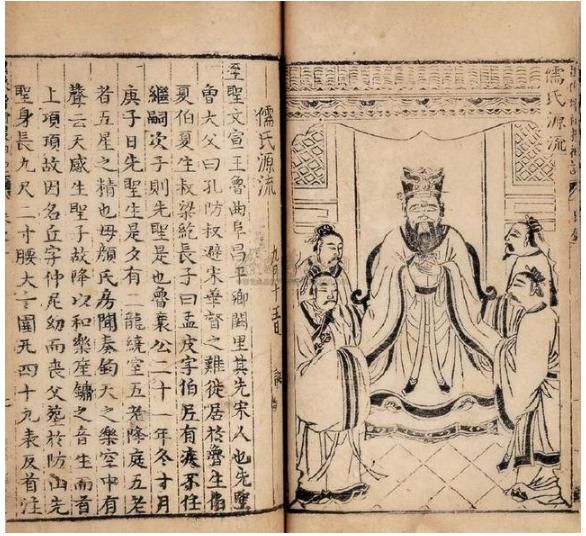 儒氏源流
儒氏源流
九月十五日
至聖文宣王魯曲阜昌平鄉闕里其先宋人也先聖
曾大父曰孔防叔避宋華督之難徙居於魯生伯
夏伯夏生叔梁紇長子曰孟皮字伯尼有疾不任
繼嗣次子則先聖是也魯襄公二十一年冬十月
庚子日先聖生是夕有二龍繞室五老降庭五老
者五星之精也母顏氏房聞奏鈞天之樂空中有
聲云天感生聖子故降以和樂笙鏞之音生而首
上項項故因名丘字仲尼幼而喪父葬於防山先
聖身長九尺二寸腰大十圍凡四十九表反首注